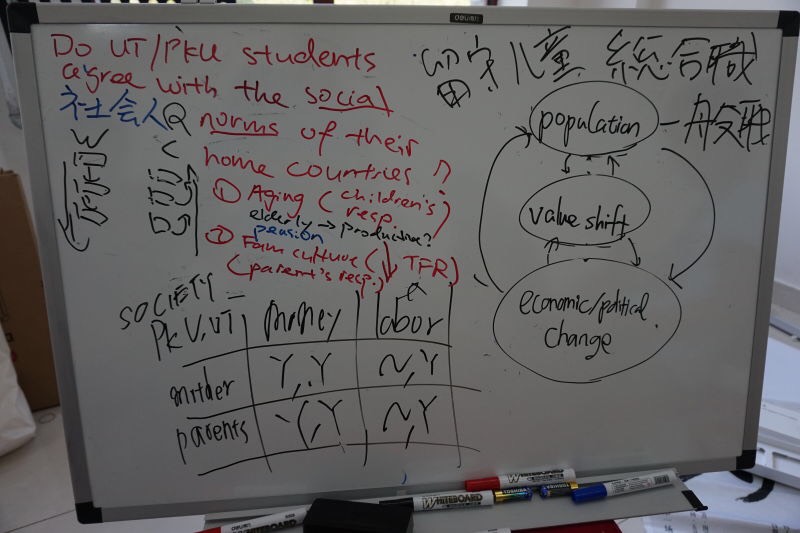 deli
Do UT/PKU students
agree with the social
norms of their
home countries?
① Aging (children's
resp.)
elderly → productive?
pension
② Fam culture (↓ TFR)
(parent's resp.)
社会人
Q
留守儿童
総合職
一般职
population
value shift
economic/political
change
SOCIETY
PKU, UT
money
labor
Y, Y
N, Y
parents
Y, Y
N, Y
WHITEBOARD
WHITEBOARD
TOSHIBA
TOSHIBA
deli